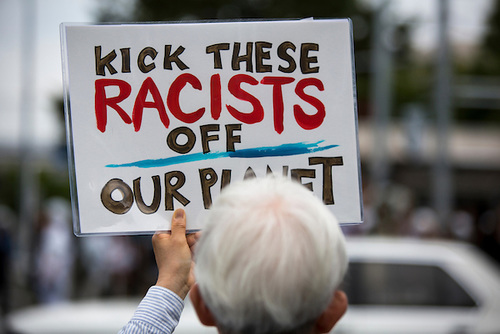 KICK THESE
RACISTS
OFF
OUR PLANET